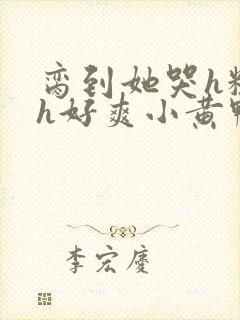 脔到她哭h粗
h好爽小黄鸭
李宏庆